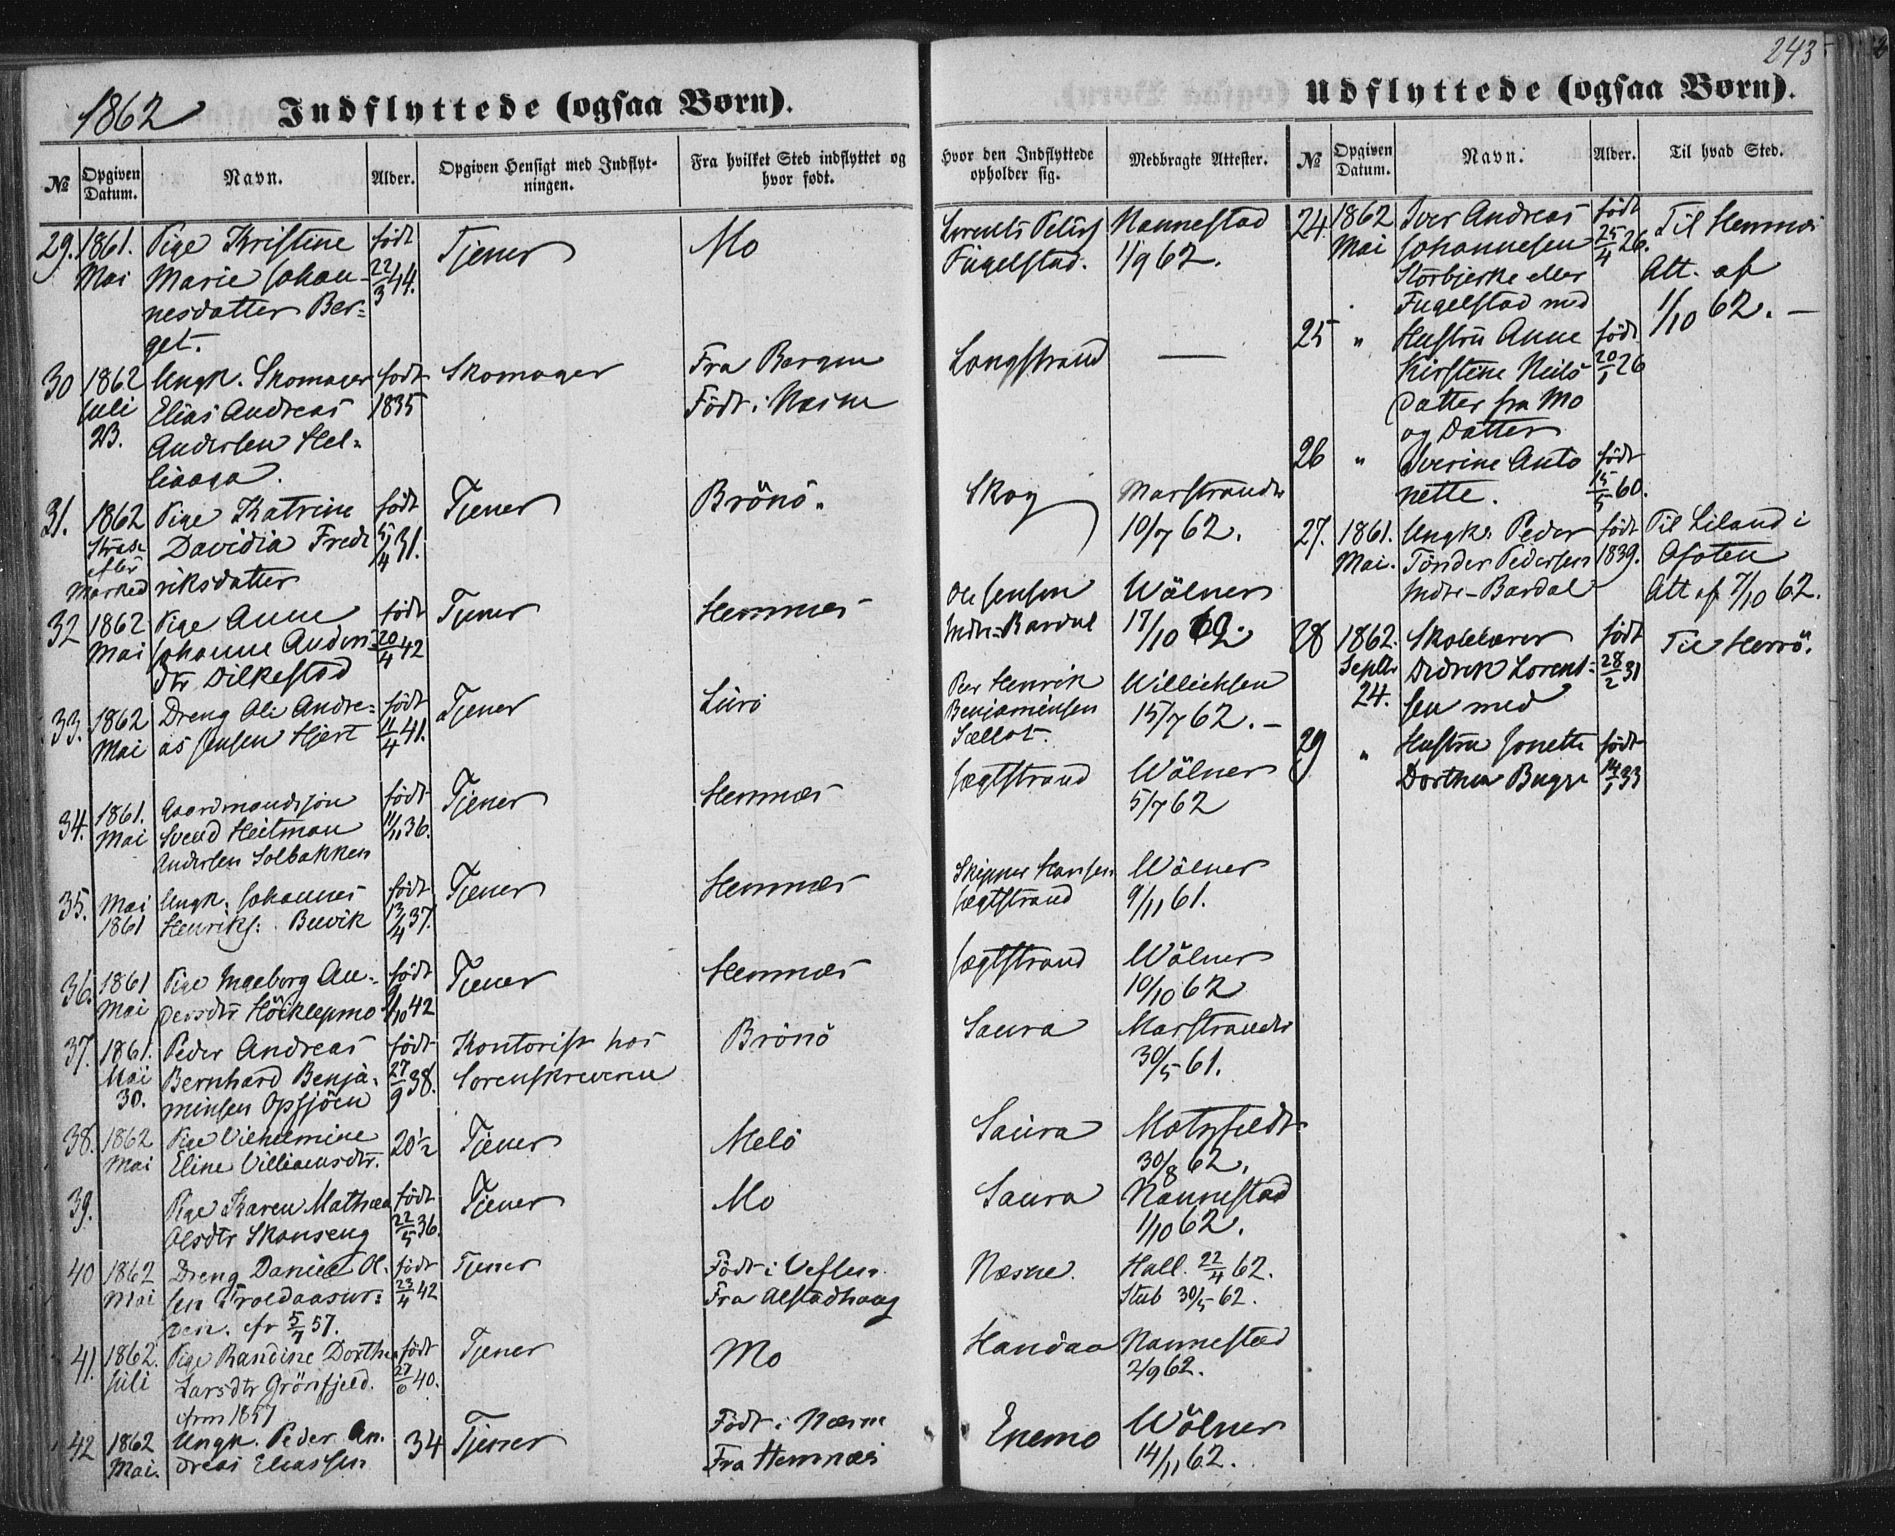 243
1862
Indflyttede (ogsaa Børn).
Udflyttede (ogsaa Børn).
№
Opgiven Datum.
Navn.
Alder.
Opgiven Hensigt med Indflyt-
ningen.
Fra hvilket Sted indflyttet og
hvor født.
Hvor den Indflyttede
opholder sig.
Medbragte Attester.
29. 1861. Pige Kristine født Tjener Mo Lorents Peters Nannestad
Mai Marie Johan- 22/3 44. Fugelstad. 1/9 62.
nesdatter Ber-
get.
30 1862 Ungk. Skomager født Skomager Fra Bergen Langstrand —
Juli Elias Andreas 1835 Født i Nesne
23. Andersen Hel-
31. 1862 Pige Katrine født Tjener Brönö. Skog Marstrander
Strax Davidia Fredr 5/4 31. 10/7 62.
efter
Marked riksdatter
32 1862 Pige Anne født Tjener Hemnæs Ole Jensen Wölner
Mai Johanne Anders 20/4 42 Indre-Bardal 17/10 62.
dtr Dilkestad
33. 1862 Dreng Ole Andre- født Tjener Lurö Peer Henrik Willichsen
Mai as Jensen Hjert 11/4 41. Benjaminsen 15/7 62. —
34. 1861. Gaardmandssön født Tjener Hemnæs Jægtstrand Wölner
Mai Svend Heitman 11/11 36. 5/7 62
Andersen Solbakken
35. Mai Ungk. Johannes født Tjener Hemnæs Skipper Hansen Wölner
1861 Henriks: 13/4 37. Jægtstrand 9/11 61.
36. 1861 Pige Ingeborg An- født Tjener Hemnæs Jægtstrand Wölner
Mai dersdtr Höiklepmo 9/10 42 10/10 62
37. 1861. Peder Andreas født Kontorist hos Brönö Saura Marstrander
Mai Bernhard Benja- 27/9 38. Sorenskriveren 30/5 61.
30. minsen Opsjöen
38. 1862 Pige Vilhelmine 20½ Tjener Melö Saura Motzfeldt
Mai Eline Villiamsdtr. 30/8 62.
39. Pige Karen Mathea født Tjener Mo Saura Nannestad
Olsdtr Skonseng 22/5 36. 1/10 62.
40 1862 Dreng Daniel Ol- født Tjener Født i Vefsen Næsne. Hall. 22/4 62.
Mai sen Troldaasur- 23/4 42 Fra Alstadhaug Stub 30/5 62.
den. cfr 5/7 57.
41. 1862. Pige Randine Dorthea født Tjener Mo Handaa Nannestad
Juli Larsdtr Grönfjeld. 27/6 40. 2/9 62.
1857
42 1862 Ungk. Peder An- 34 Tjener Født i Næsne Enemo Wölner
Mai. dreas Eliassen Fra Hemnæs 14/11 62.
№
Opgiven Datum.
Navn.
Alder.
Til hvad Sted.
24. 1862 Iver Andreas født Til Hemnæs
Mai Johannesen 25/4 26. Att. af
Storbjerke eller 1/10 62. —
Fugelstad med
25 " Hustru Anne født
Kirstine Neils 20/5 26
datter fra Mo
og Datter
26 " Iverine Anto født
nette. 15/5 60.
27. 1861. Ungk: Peder født Til Liland i
Mai. Tönder Pedersen 1839. Ofoten
Indre-Bardal Att af 7/10 62.
28 1862. Skolelærer født Til Herrö.
Septbr Didrik Lorent- 28/2 31
24. sen med
29 " Hustru Jonette født
Dorthea Bugge 14/5 33